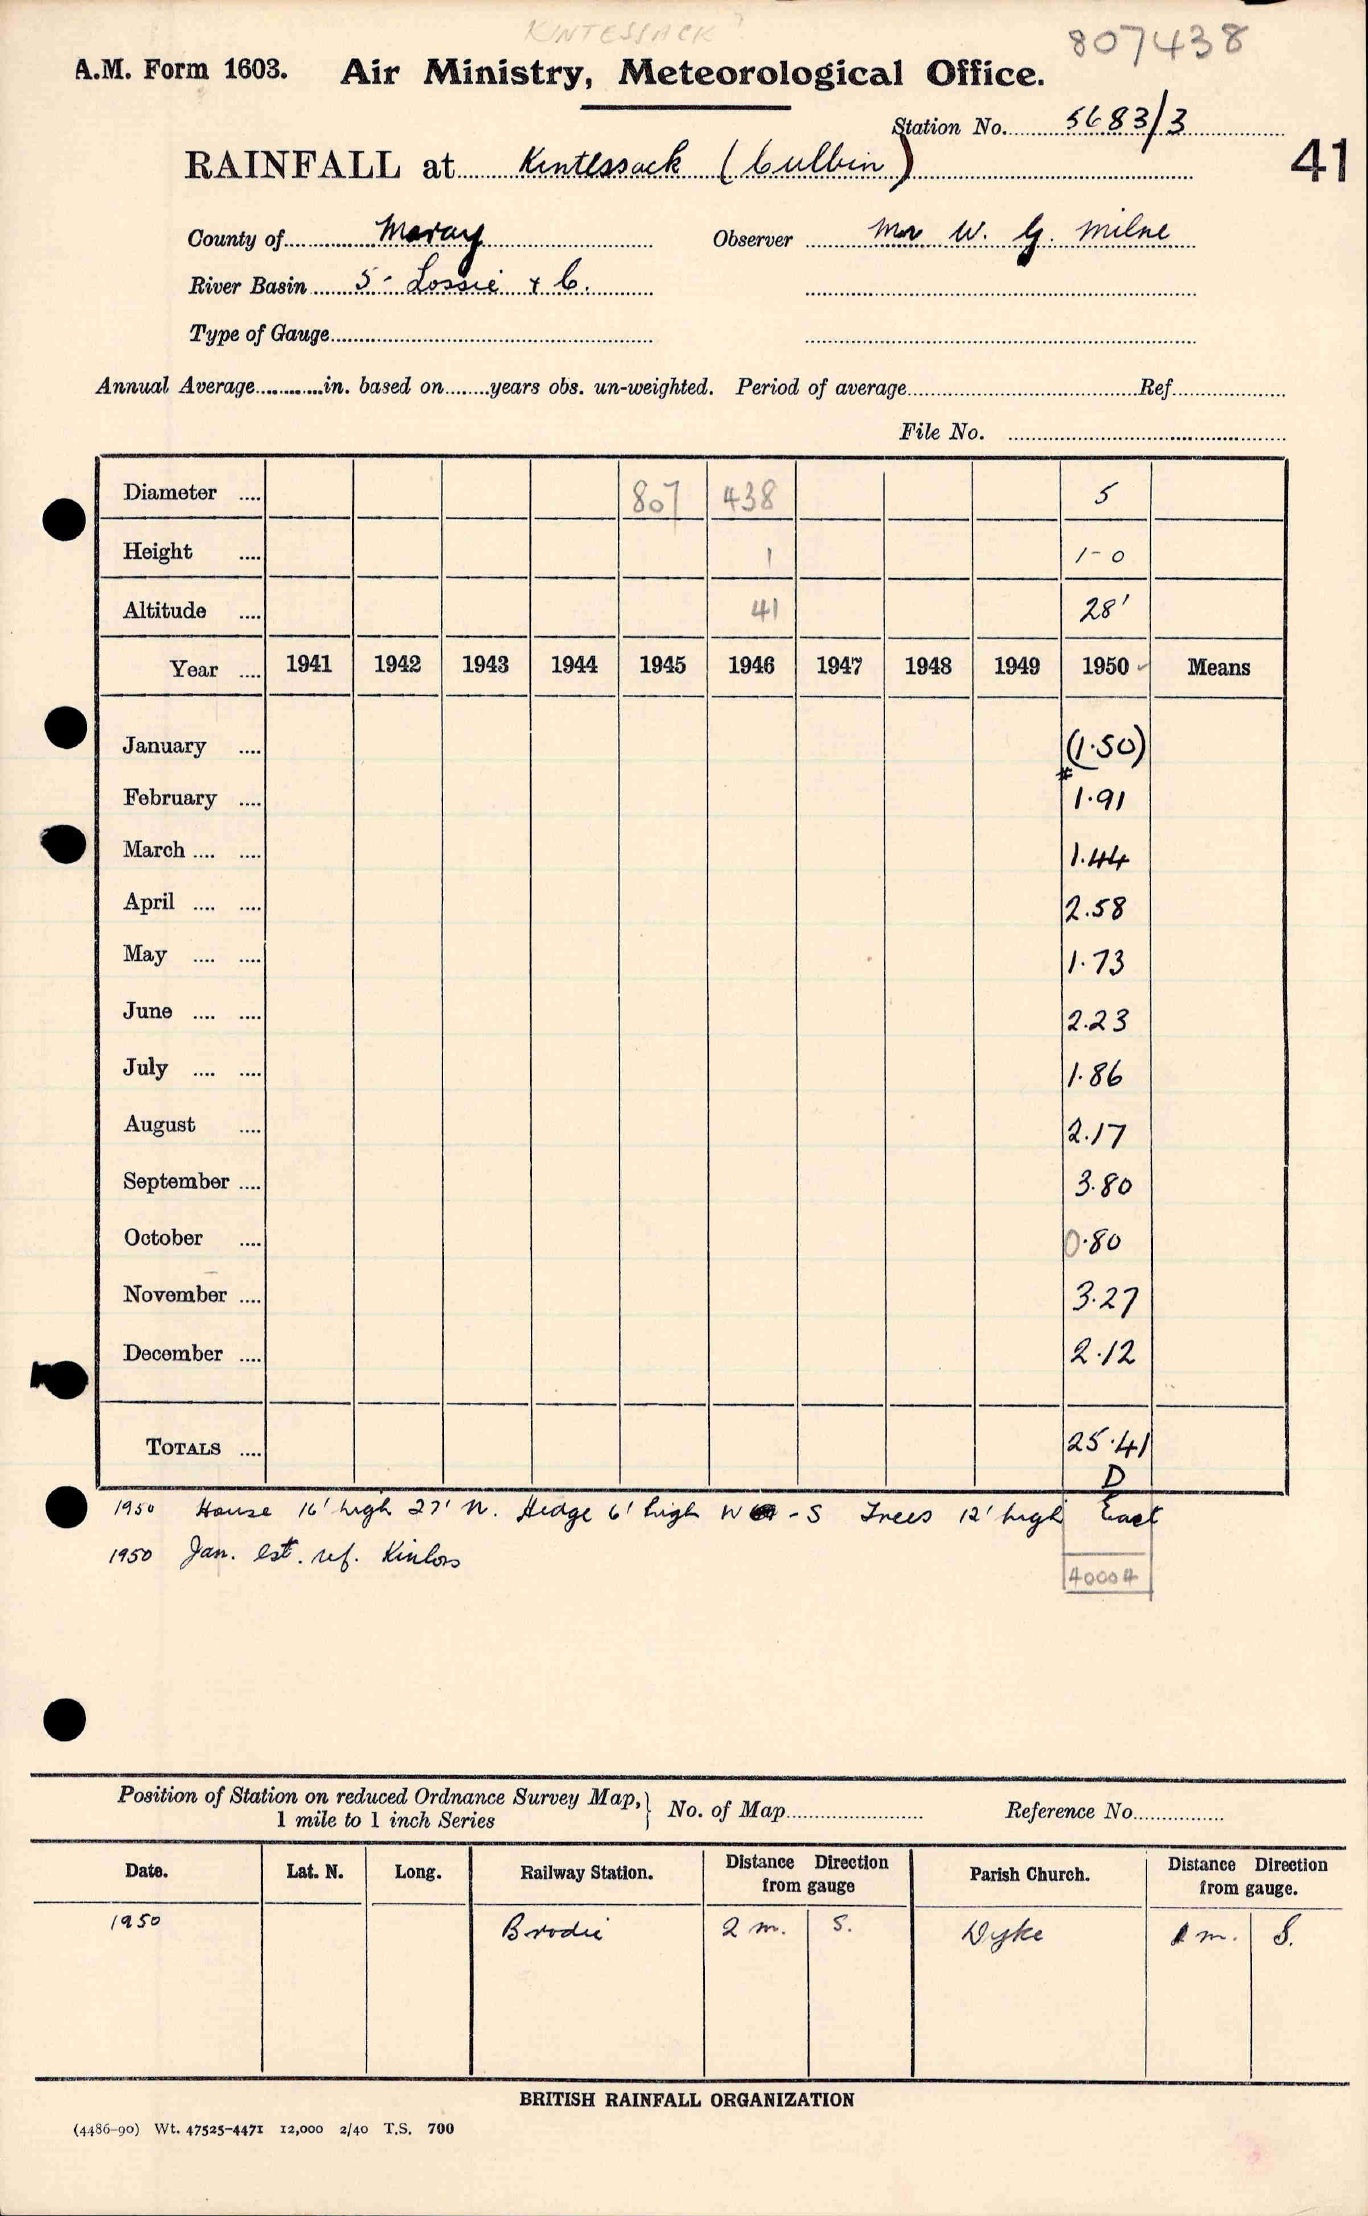 KINTESSACK?
807438
A.M. Form 1603. Air Ministry, Meteorological Office.
Station No. 5683/3
41
RAINFALL at Kintessack (Culbin)
County of Moray Observer Mr W. G. Milne
River Basin 5 - Lossie & C.
Type of Gauge
Annual Average in. based on years obs. un-weighted. Period of average Ref
File No.
Diameter .... 807 438 5
Height .... 1 1-0
Altitude .... 41 28'
Year .... 1941 1942 1943 1944 1945 1946 1947 1948 1949 1950 ✓ Means
January .... (1.50)
February .... * 1.91
March .... .... 1.44
April .... .... 2.58
May .... .... 1.73
June .... .... 2.23
July .... .... 1.86
August .... 2.17
September .... 3.80
October .... 0.80
November .... 3.27
December .... 2.12
TOTALS .... 25.41
D
1950 House 16' high 27' N. Hedge 6' high W - S Trees 12' high East
1950 Jan. est. ref. Kinloss
40004
Position of Station on reduced Ordnance Survey Map, } No. of Map Reference No.
1 mile to 1 inch Series
Date. Lat. N. Long. Railway Station. Distance Direction from gauge Parish Church. Distance Direction from gauge.
1950 Brodie 2 m. S. Dyke 1 m. S.
BRITISH RAINFALL ORGANIZATION
(4486-90) Wt. 47525-4471 12,000 2/40 T.S. 700